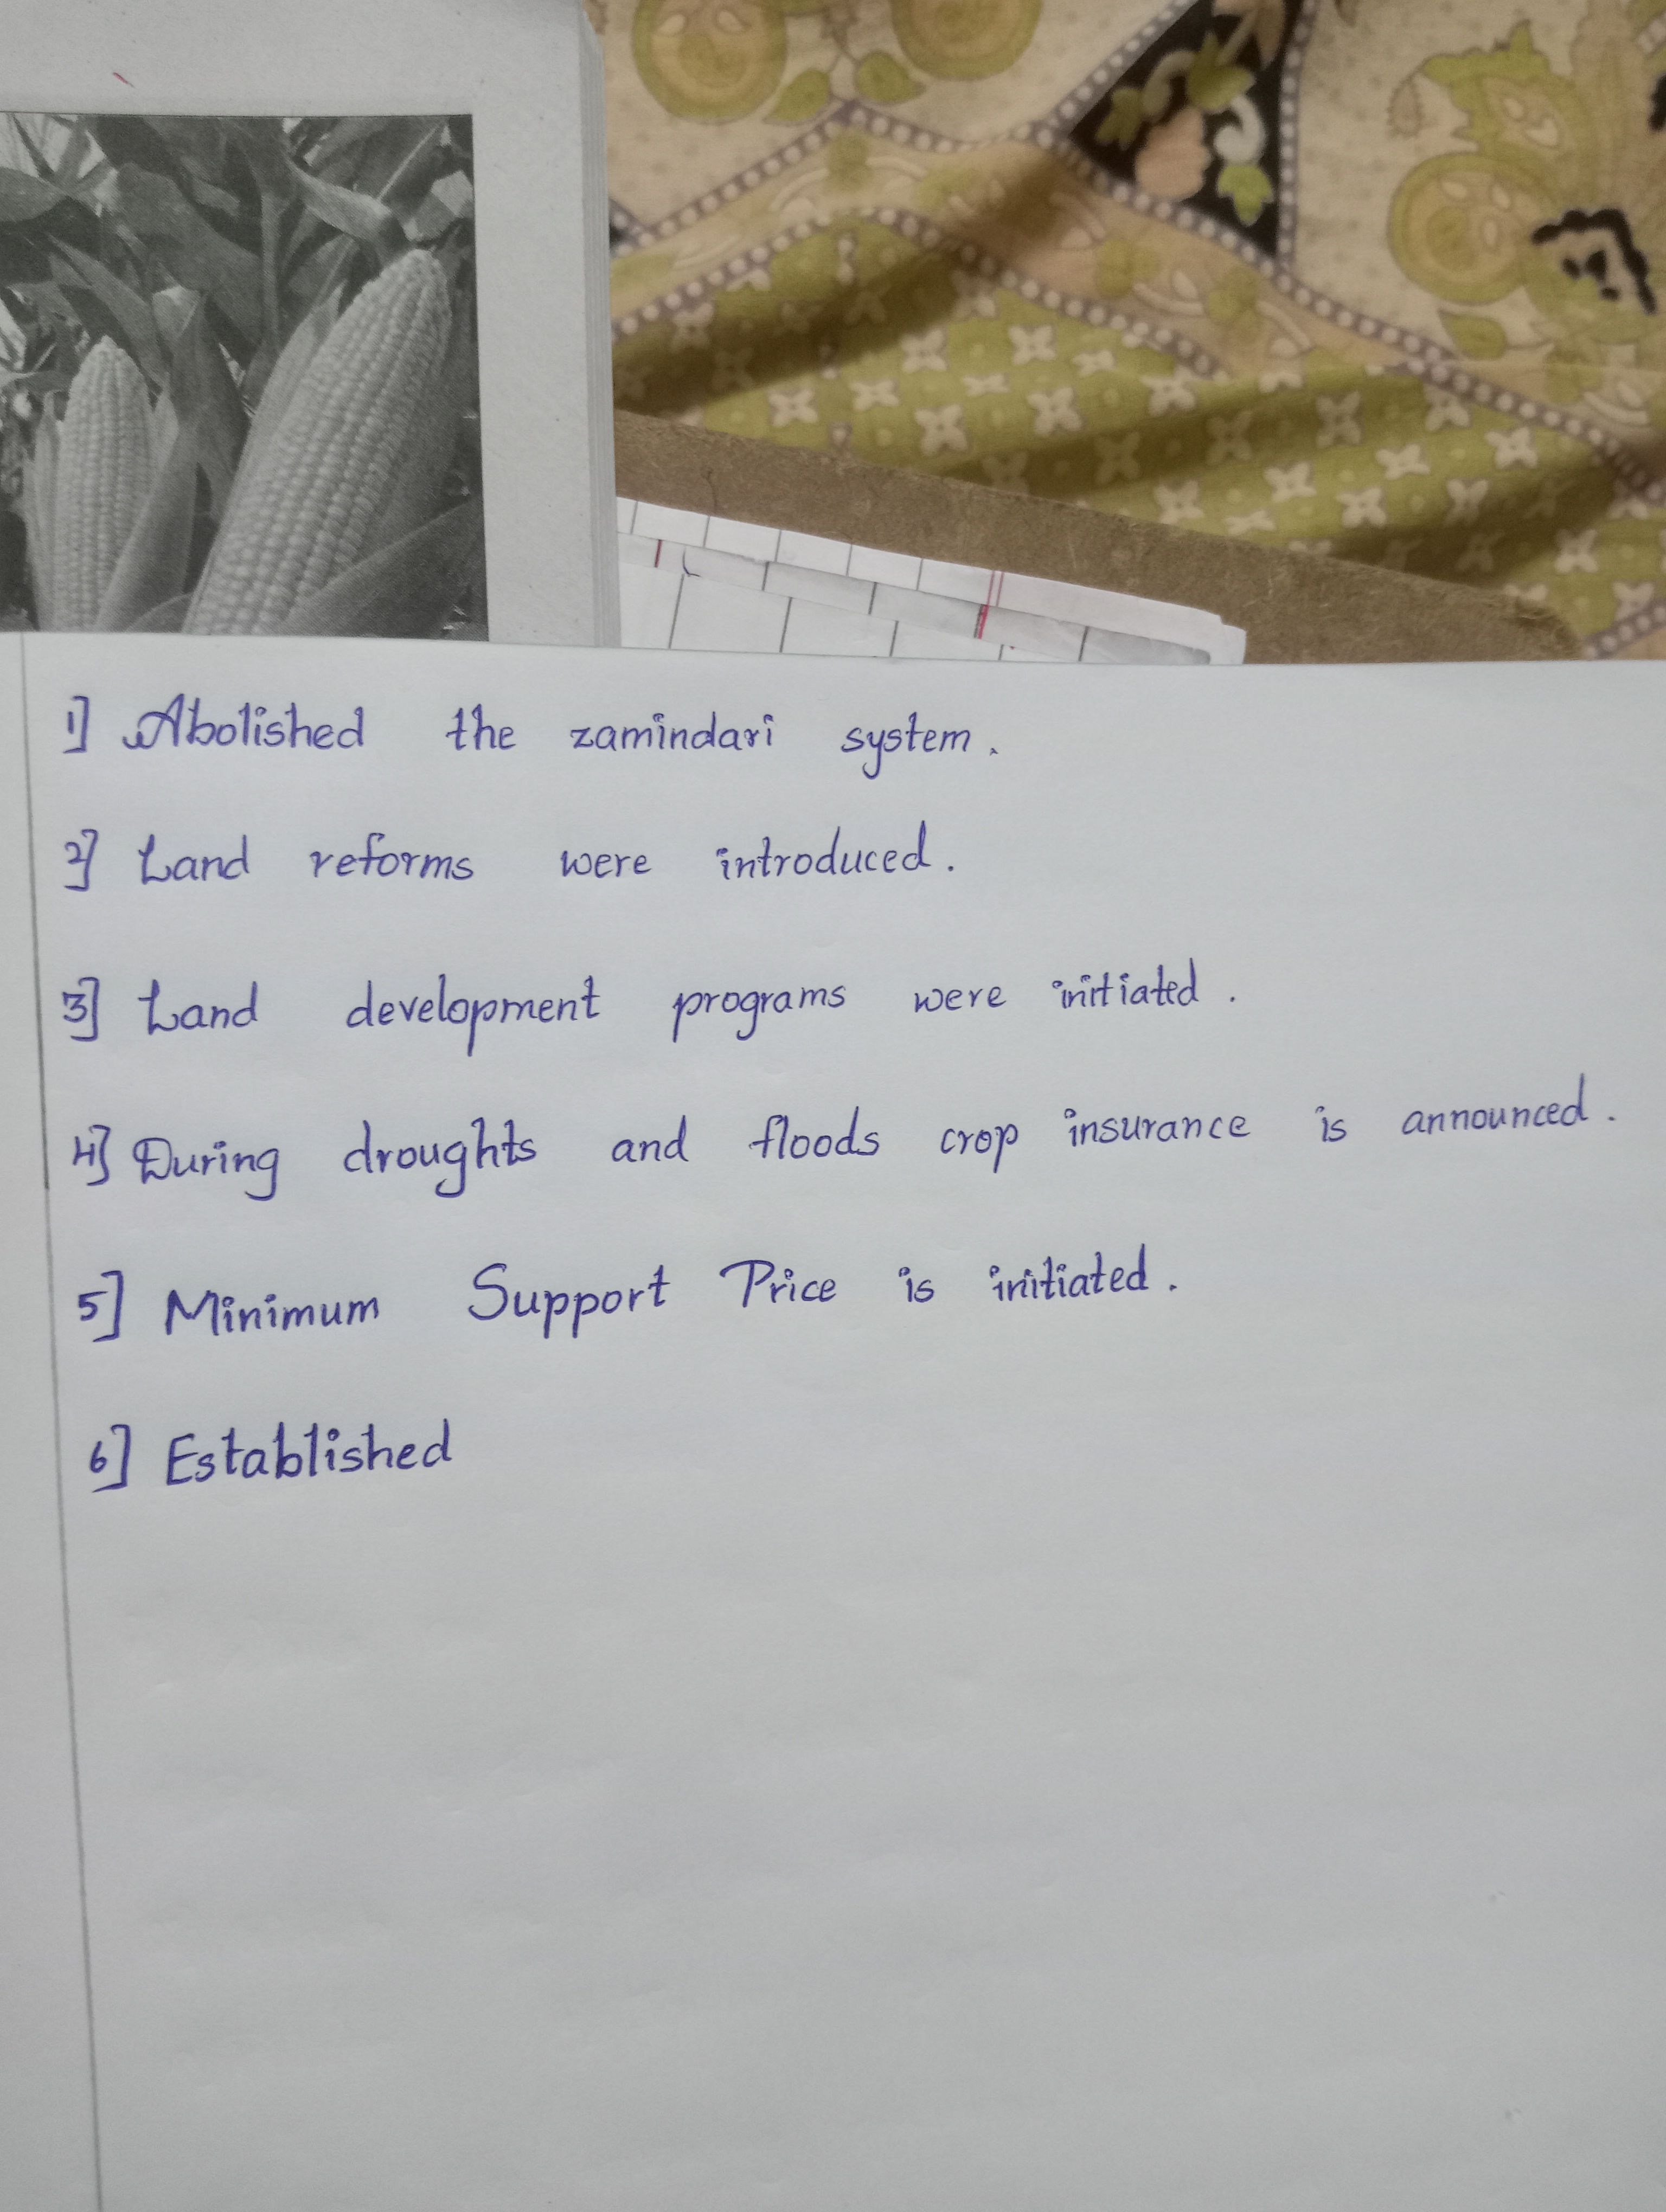 1] Abolished the zamindari system.
2] Land reforms were introduced.
3] Land development programs were initiated.
4] During droughts and floods crop insurance is announced.
5] Minimum Support Price is initiated.
6] Established